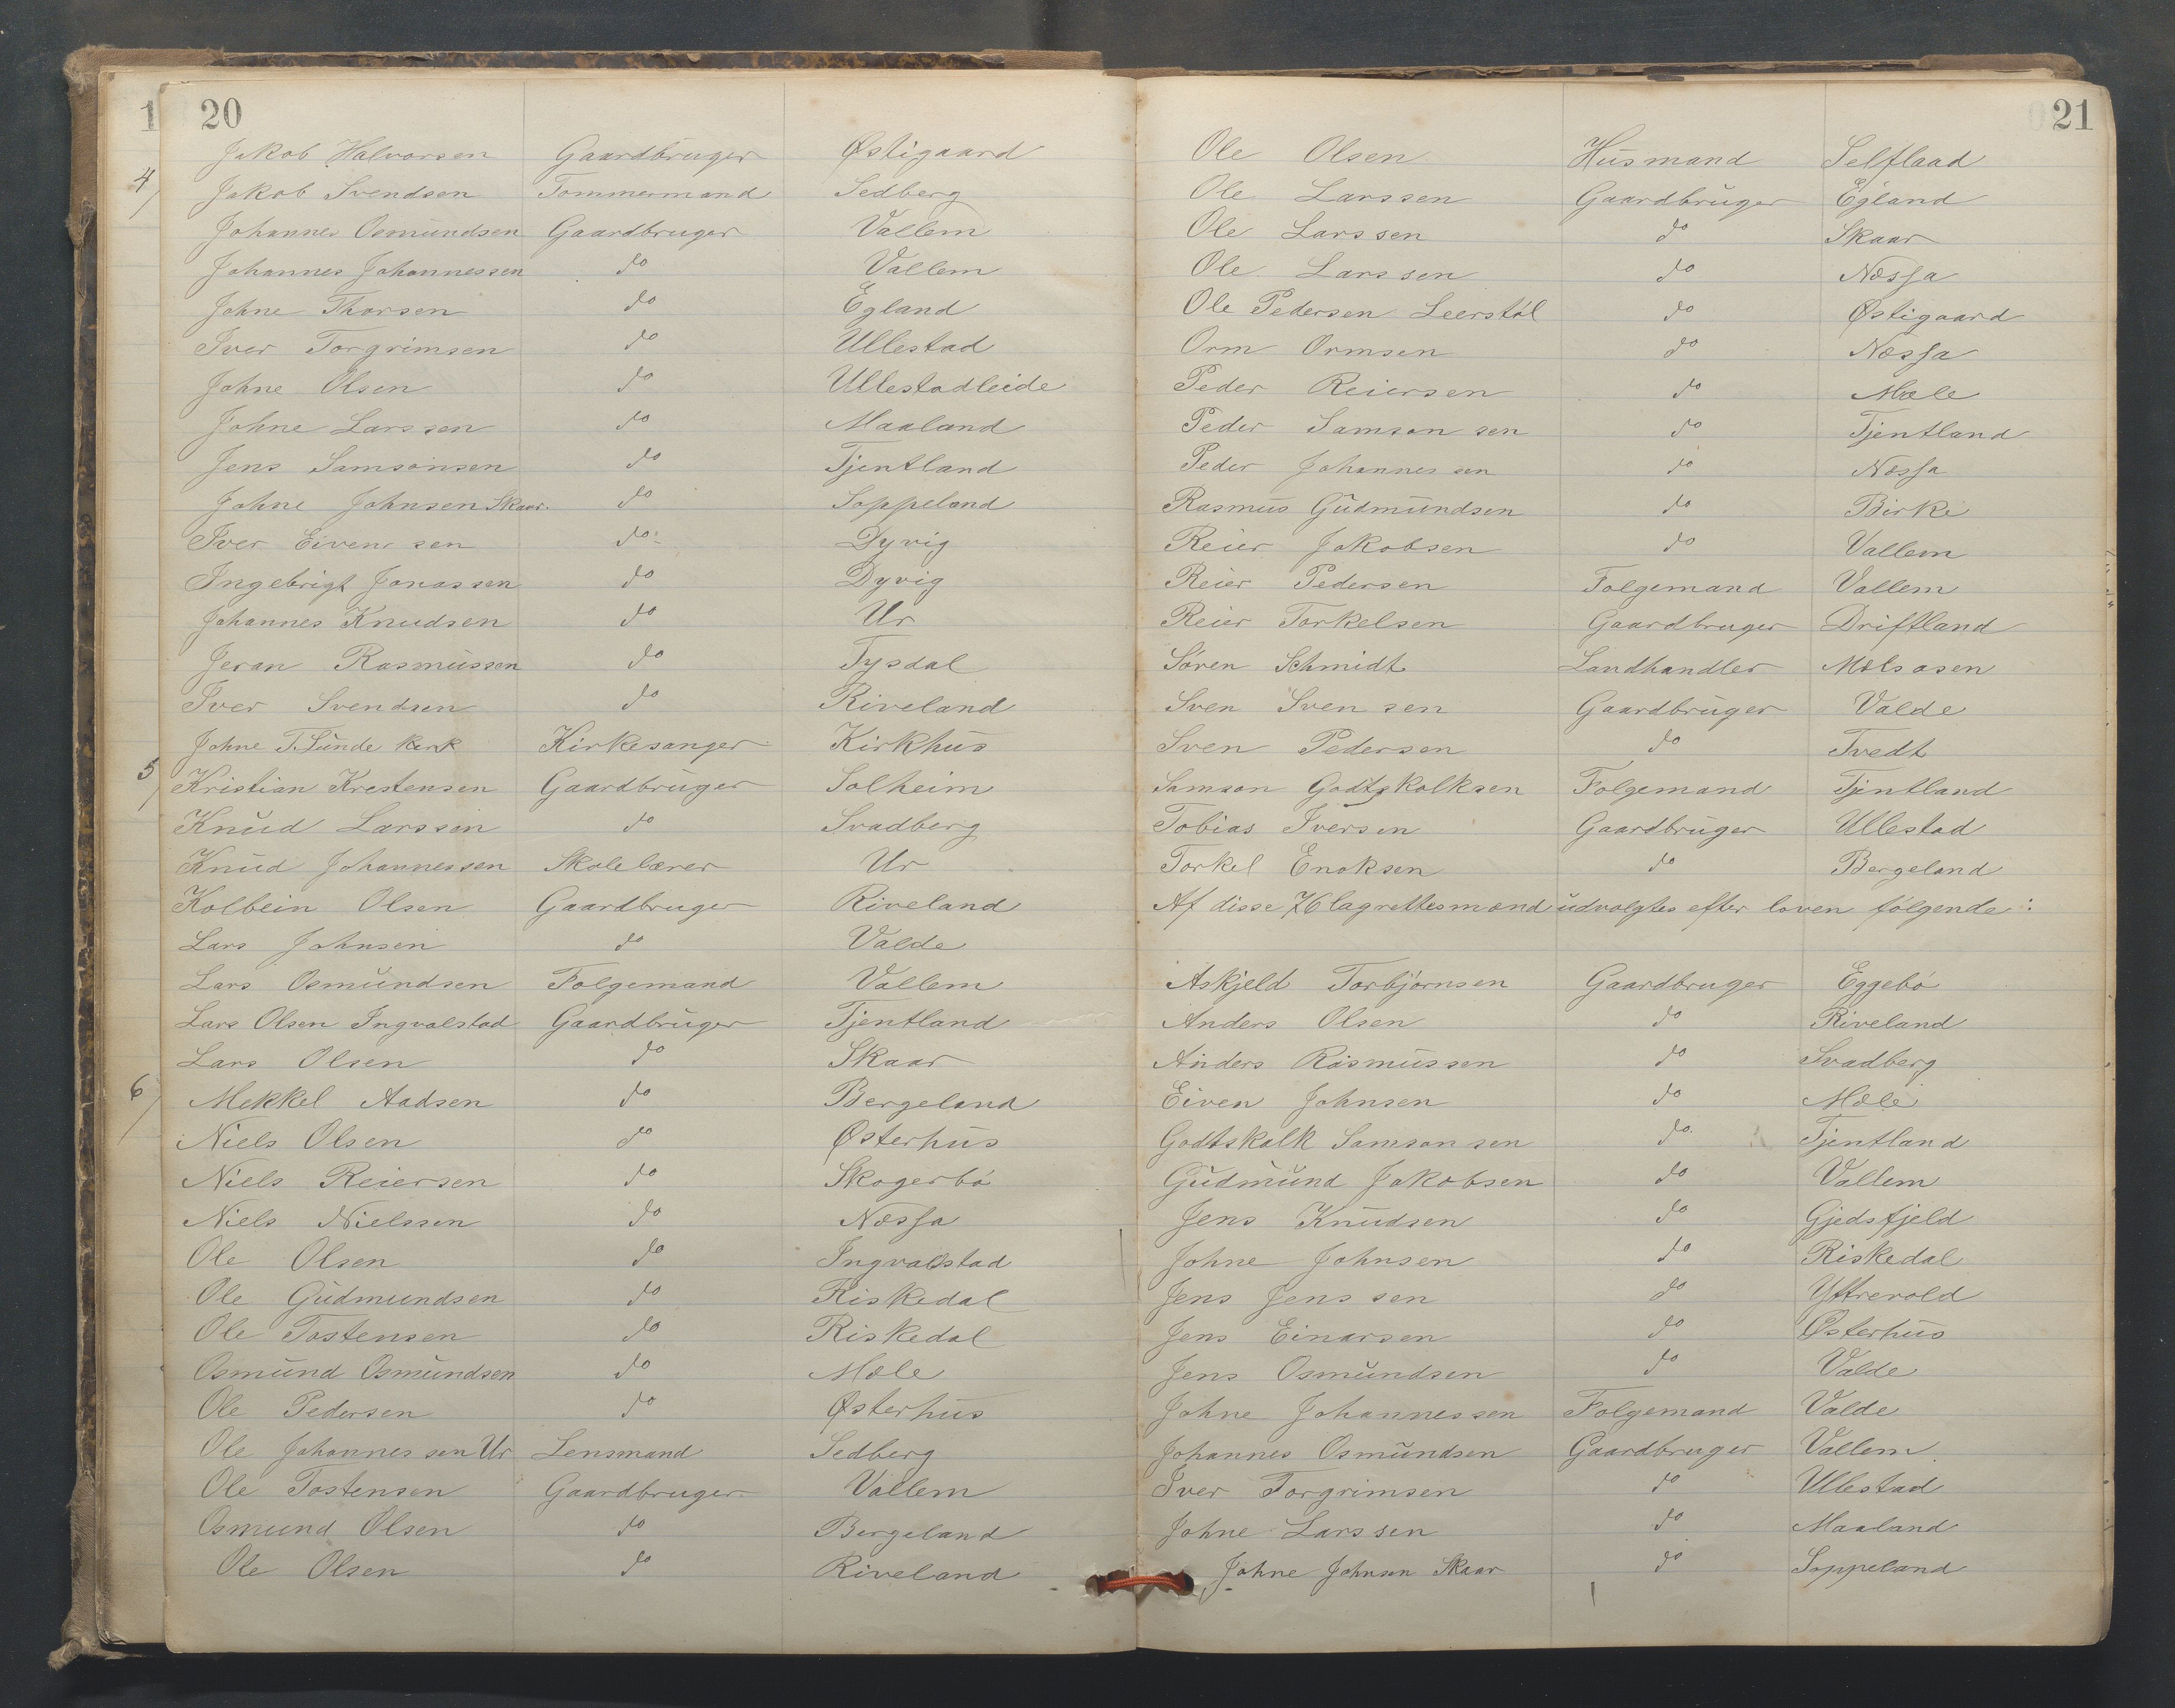 1 20
Jakob Halvorsen Gaardbruger Østigaard
4/ Jakob Svendsen Tømmermand Sedberg
Johannes Osmundsen Gaardbruger Vallem
Johannes Johannessen do Vallem
Johne Thorsen do Egland
Iver Torgrimsen do Ullestad
Johne Olsen do Ullestadleide
Johne Larssen do Maaland
Jens Samsonsen do Tjentland
Johne Johnsen Skaar do Soppeland
Iver Eivensen do Dyvig
Ingebrigt Jonassen do Dyvig
Johannes Knudsen do Ur
Jeran Rasmussen do Tysdal
Iver Svendsen do Riveland
Johne T. Sunde Kirkesanger Kirkhus
5/ Kristian Krestensen Gaardbruger Solheim
Knud Larssen do Svadberg
Knud Johannessen Skolelærer Ur
Kolbein Olsen Gaardbruger Riveland
Lars Johnsen do Valde
Lars Osmundsen Folgemand Vallem
Lars Olsen Ingvalstad Gaardbruger Tjentland
Lars Olsen do Skaar
6/ Mekkel Aadsen do Bergeland
Niels Olsen do Østerhus
Niels Reiersen do Skogerbø
Niels Nielssen do Nessa
Ole Olsen do Ingvalstad
Ole Gudmundsen do Riskedal
Ole Tostensen do Riskedal
Osmund Osmundsen do Mæle
Ole Pedersen do Østerhus
Ole Johannessen Ur Lensmand Sedberg
Ole Tostensen Gaardbruger Vallem
Osmund Olsen do Bergeland
Ole Olsen do Riveland
21
Ole Olsen Husmand Selflaad
Ole Larssen Gaardbruger Egland
Ole Larssen do Skaar
Ole Larssen do Nessa
Ole Pedersen Leerstøl do Østigaard
Orm Ormsen do Nessa
Peder Reiersen do Mæle
Peder Samsonsen do Tjentland
Peder Johannessen do Nessa
Rasmus Gudmundsen do Birke
Reier Jakobsen do Vallem
Reier Pedersen Folgemand Vallem
Reier Torkelsen Gaardbruger Driftland
Søren Schmidt Landhandler Mælsosen
Sven Svensen Gaardbruger Valde
Sven Pedersen do Tvedt
Samson Godtskalksen Folgemand Tjentland
Tobias Iversen Gaardbruger Ullestad
Torkel Enoksen do Bergeland
Af disse 76 lagrettesmænd udvalgtes efter loven følgende:
Askjeld Torbjørnsen Gaardbruger Eggebø
Anders Olsen do Riveland
Anders Rasmussen do Svadberg
Eiven Johnsen do Mæle
Godtskalk Samsonsen do Tjentland
Gudmund Jakobsen do Vallem
Jens Knudsen do Gjedsfjeld
Johne Johnsen do Riskedal
Jens Jenssen do Yttrevold
Jens Einarsen do Østerhus
Jens Osmundsen do Valde
Johne Johannessen Folgemand Valde
Johannes Osmundsen Gaardbruger Vallem
Iver Torgrimsen do Ullestad
Johne Larssen do Maaland
Johne Johnsen Skaar do Soppeland